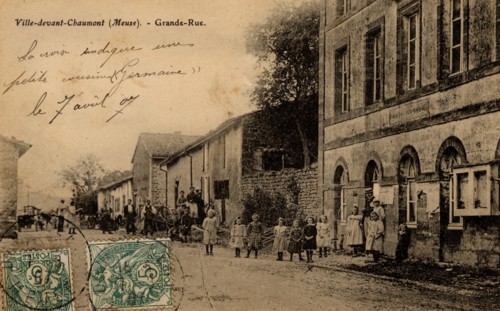 Ville-devant-Chaumont (Meuse). - Grande-Rue.
La croix indique une
petite cousine (Germaine)
le 7 avril 07
5
5